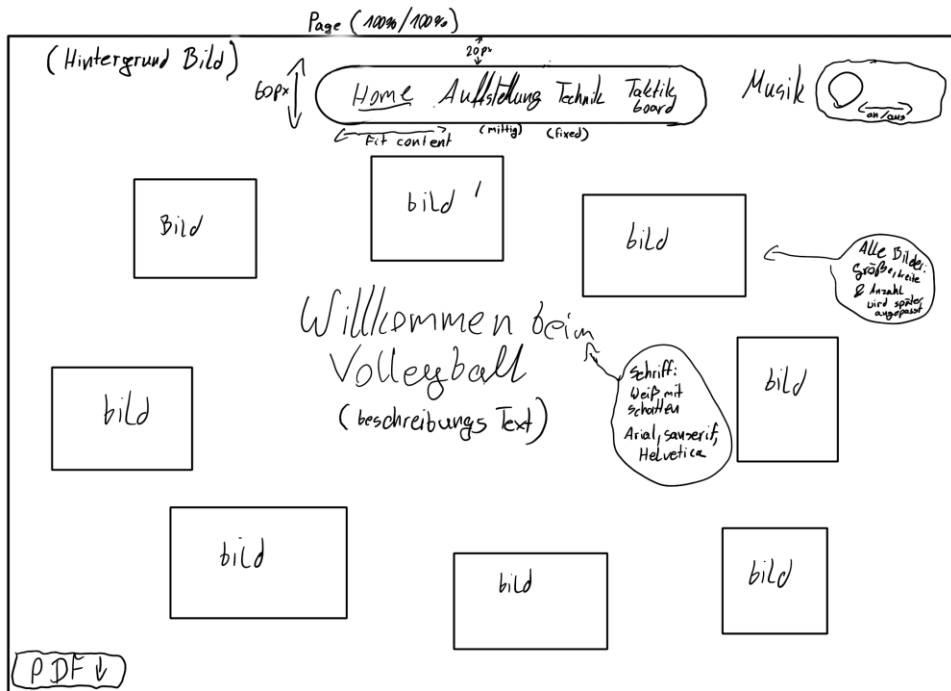 Page (100%/100%)
(Hintergrund Bild)
20px
60px
Home Aufstellung Technik Taktik
board
Musik
an/aus
Fit content
(mittig)
(fixed)
Bild
bild
bild
Alle Bilder:
Größe, breite
& Anzahl
wird später
angepasst
Willkommen beim
Volleyball
(beschreibungs Text)
Schrift:
Weiß mit
schatten
Arial, sanserif,
Helvetica
bild
bild
bild
bild
bild
PDF ↓